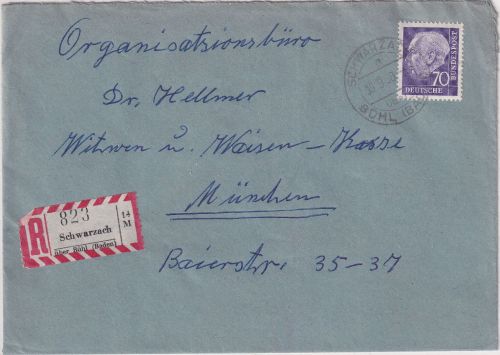 Organisationsbüro
Dr. Hellmer
Witwen u. Waisen-Kasse
München
Baierstr. 35-37
70
DEUTSCHE BUNDESPOST
SCHWARZA
BÜHL (BA
R
823
14
M
Schwarzach
über Bühl (Baden)